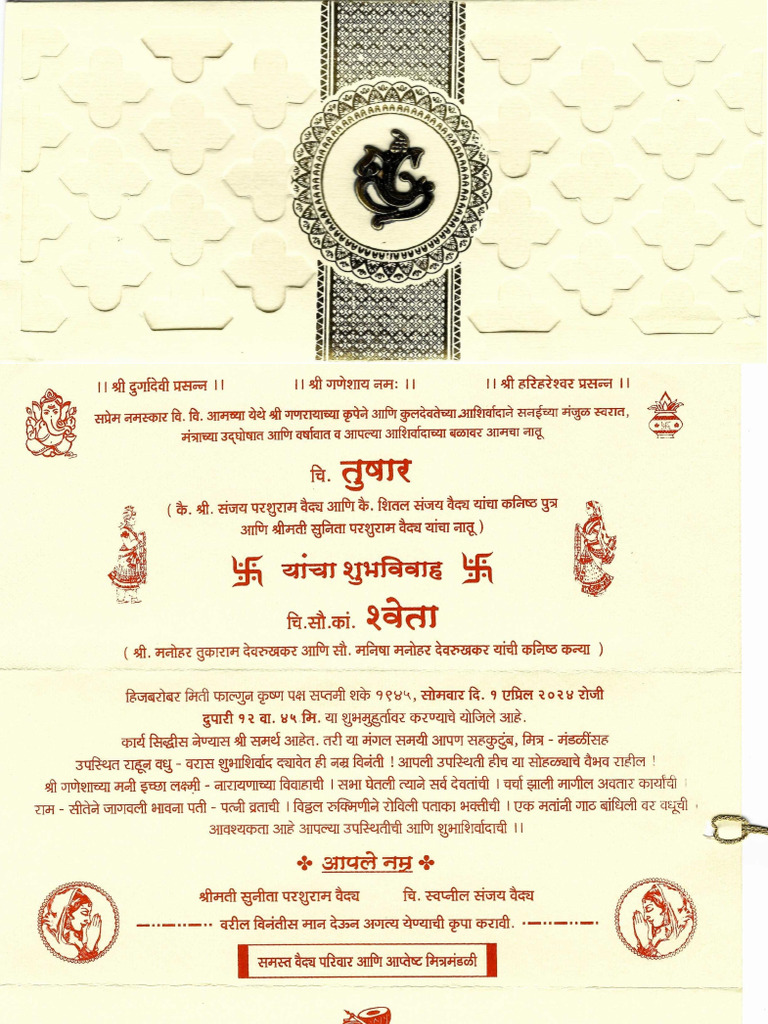 ।। श्री दुर्गादेवी प्रसन्न ।। ।। श्री गणेशाय नमः ।। ।। श्री हरिहरेश्वर प्रसन्न ।।
सप्रेम नमस्कार वि. वि. आमच्या येथे श्री गणरायाच्या कृपेने आणि कुलदेवतेच्या आशिर्वादाने सनईच्या मंजुळ स्वरात,
मंत्राच्या उद्घोषात आणि वर्षावात व आपल्या आशिर्वादाच्या बळावर आमचा नातू
चि. तुषार
( कै. श्री. संजय परशुराम वैद्य आणि कै. शितल संजय वैद्य यांचा कनिष्ठ पुत्र
आणि श्रीमती सुनिता परशुराम वैद्य यांचा नातू )
यांचा शुभविवाह
चि.सौ.कां. श्वेता
( श्री. मनोहर तुकाराम देवरुखकर आणि सौ. मनिषा मनोहर देवरुखकर यांची कनिष्ठ कन्या )
हिजबरोबर मिती फाल्गुन कृष्ण पक्ष सप्तमी शके १९४५, सोमवार दि. १ एप्रिल २०२४ रोजी
दुपारी १२ वा. ४५ मि. या शुभमुहुर्तावर करण्याचे योजिले आहे.
कार्य सिद्धीस नेण्यास श्री समर्थ आहेत. तरी या मंगल समयी आपण सहकुटुंब, मित्र - मंडळींसह
उपस्थित राहून वधु - वरास शुभाशिर्वाद द्यावेत ही नम्र विनंती ! आपली उपस्थिती हीच या सोहळ्याचे वैभव राहील !
श्री गणेशाच्या मनी इच्छा लक्ष्मी - नारायणाच्या विवाहाची । सभा घेतली त्याने सर्व देवतांची । चर्चा झाली मागील अवतार कार्याची ।
राम - सीतेने जागवली भावना पती - पत्नी व्रताची । विठ्ठल रुक्मिणीने रोविली पताका भक्तीची । एक मतांनी गाठ बांधिली वर वधूची ।
आवश्यकता आहे आपल्या उपस्थितीची आणि शुभाशिर्वादाची ।।
आपले नम्र
श्रीमती सुनीता परशुराम वैद्य चि. स्वप्नील संजय वैद्य
वरील विनंतीस मान देऊन अगत्य येण्याची कृपा करावी.
समस्त वैद्य परिवार आणि आप्तेष्ट मित्रमंडळी